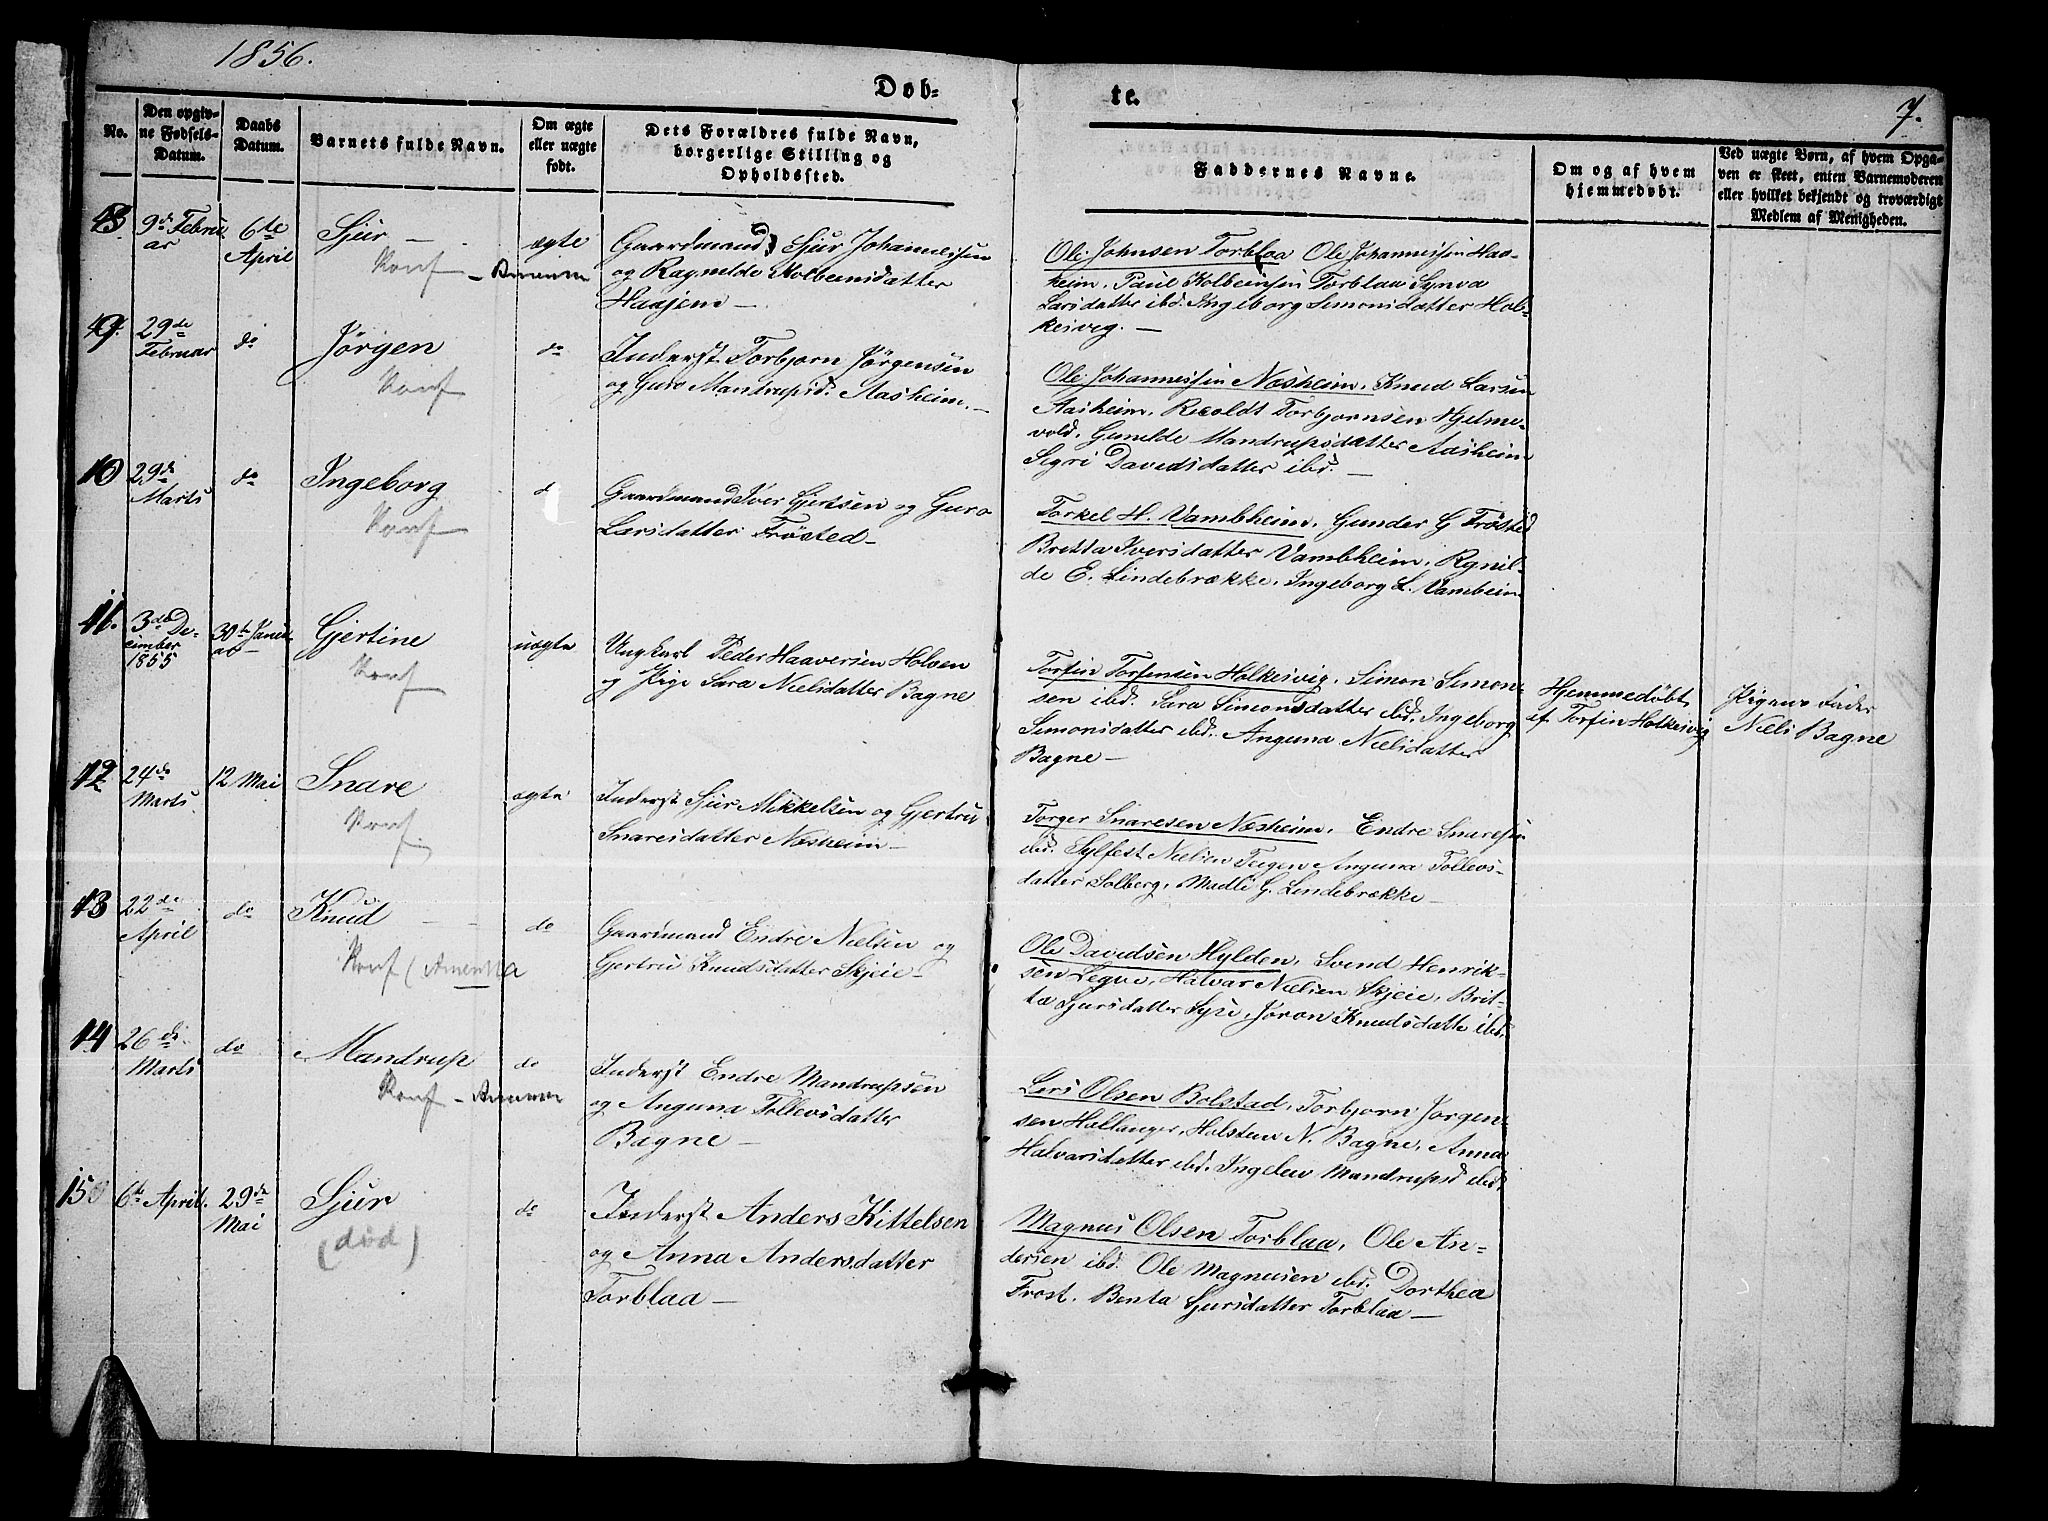 1856.
Døb-
te.
7.
No.
Den opgiv-
ne Fødsels-
Datum.
Daabs
Datum.
Barnets fulde Navn.
Om ægte
eller uægte
født.
Dets Forældres fulde Navn,
borgerlige Stilling og
Opholdssted.
Faddernes Navne.
Om og af hvem
hjemmedøbt.
Ved uægte Børn, af hvem Opga-
ven er skeet, enten Barnemoderen
eller hvilket bekjendt og troværdigt
Medlem af Menigheden.
9de Febru
ar
6te
April
Sjur —
Konf
ægte
Gaardmand Sjur Johannessen
og Ragnilde Kolbeinsdatter
Haajem —
Ole Johnsen Torblaa Ole Johannessen Haa-
heim. Paul Kolbeinsen Torblaa Synva
Larsdatter ibd. Ingeborg Simonsdatter Hol-
keivig. —
29de
Februar
do
Jørgen
Konf
do
Inderst Torbjorn Jørgensen
og Guro Mandrupsd. Aasheim. —
Ole Johannessen Næsheim. Knud Larsen
Aasheim. Torbjornsen Hjelme-
vold. Gunilde Mandrupsdatter Aasheim
Sigri Davidsdatter ibd. —
10
29de
Marts
do
Ingeborg
Konf
d
Gaardmand Iver Gjertsen og Guro
Larsdatter Frøsted —
Torkel H. Vambheim. Gunder G Frøsted
Bretta Iversdatter Vambheim. Rgnil-
de E. Lindebrække. Ingeborg L. Vambeim
11.
3de De-
cember
1855
30te Janu
ar
Gjertine
Konf
uægte
Ungkarl Peder Haaversen Holven
og Pige Sara Nielsdatter Bagne
Torfin Torfinsen Holkeivig. Simon Simon-
sen ibd. Sara Simonsdatter ibd. Ingeborg
Simonsdatter ibd. Anguna Nielsdatter
Bagne —
Hjemmedøbt
af Torfin Holkeivig
Pigens Fader
Niels Bagne
12
24de
Marts
12 Mai
Snare
Konf
ægte
Inderst Sjur Mikkelsen og Gjertru
Snaresdatter Næsheim —
Torger Snaresen Næsheim. Endre Snaresen
ibd. Sylfest Nielsen Teigen Anguna Tollevs-
datter Solberg. Madli G. Lindebrække —
13
22de
April
do
Knud
Konf (Amerika
do
Gaardmand Endre Nielsen og
Gjertru Knudsdatter Skjeie —
Ole Davidsen Hylden. Svend Henrik-
sen Legve. Halvar Nielsen Skjeie. Brit-
ta Sjursdatter Syse. Jøron Knudsdatte ibd.
14
26de
Marts
do
Mandrup
Konf
do
Inderst Endre Mandrupsen
og Anguna Tollevsdatter
Bagne —
Lars Olsen Bolstad. Torbjorn Jorgen-
sen Hallanger. Holsten N. Bagne. Anna
Halvarsdatter ibd. Ingelev Mandrupsd ibd.
15
6te April.
29de
Mai
Sjur
(død)
do
Inderst Anders Kittelsen
og Anna Andersdatter
Torblaa —
Magnus Olsen Torblaa. Ole An-
dersen ibd. Ole Magnusen ibd. Dorthea
Frost. Benta Sjursdatter Torblaa —